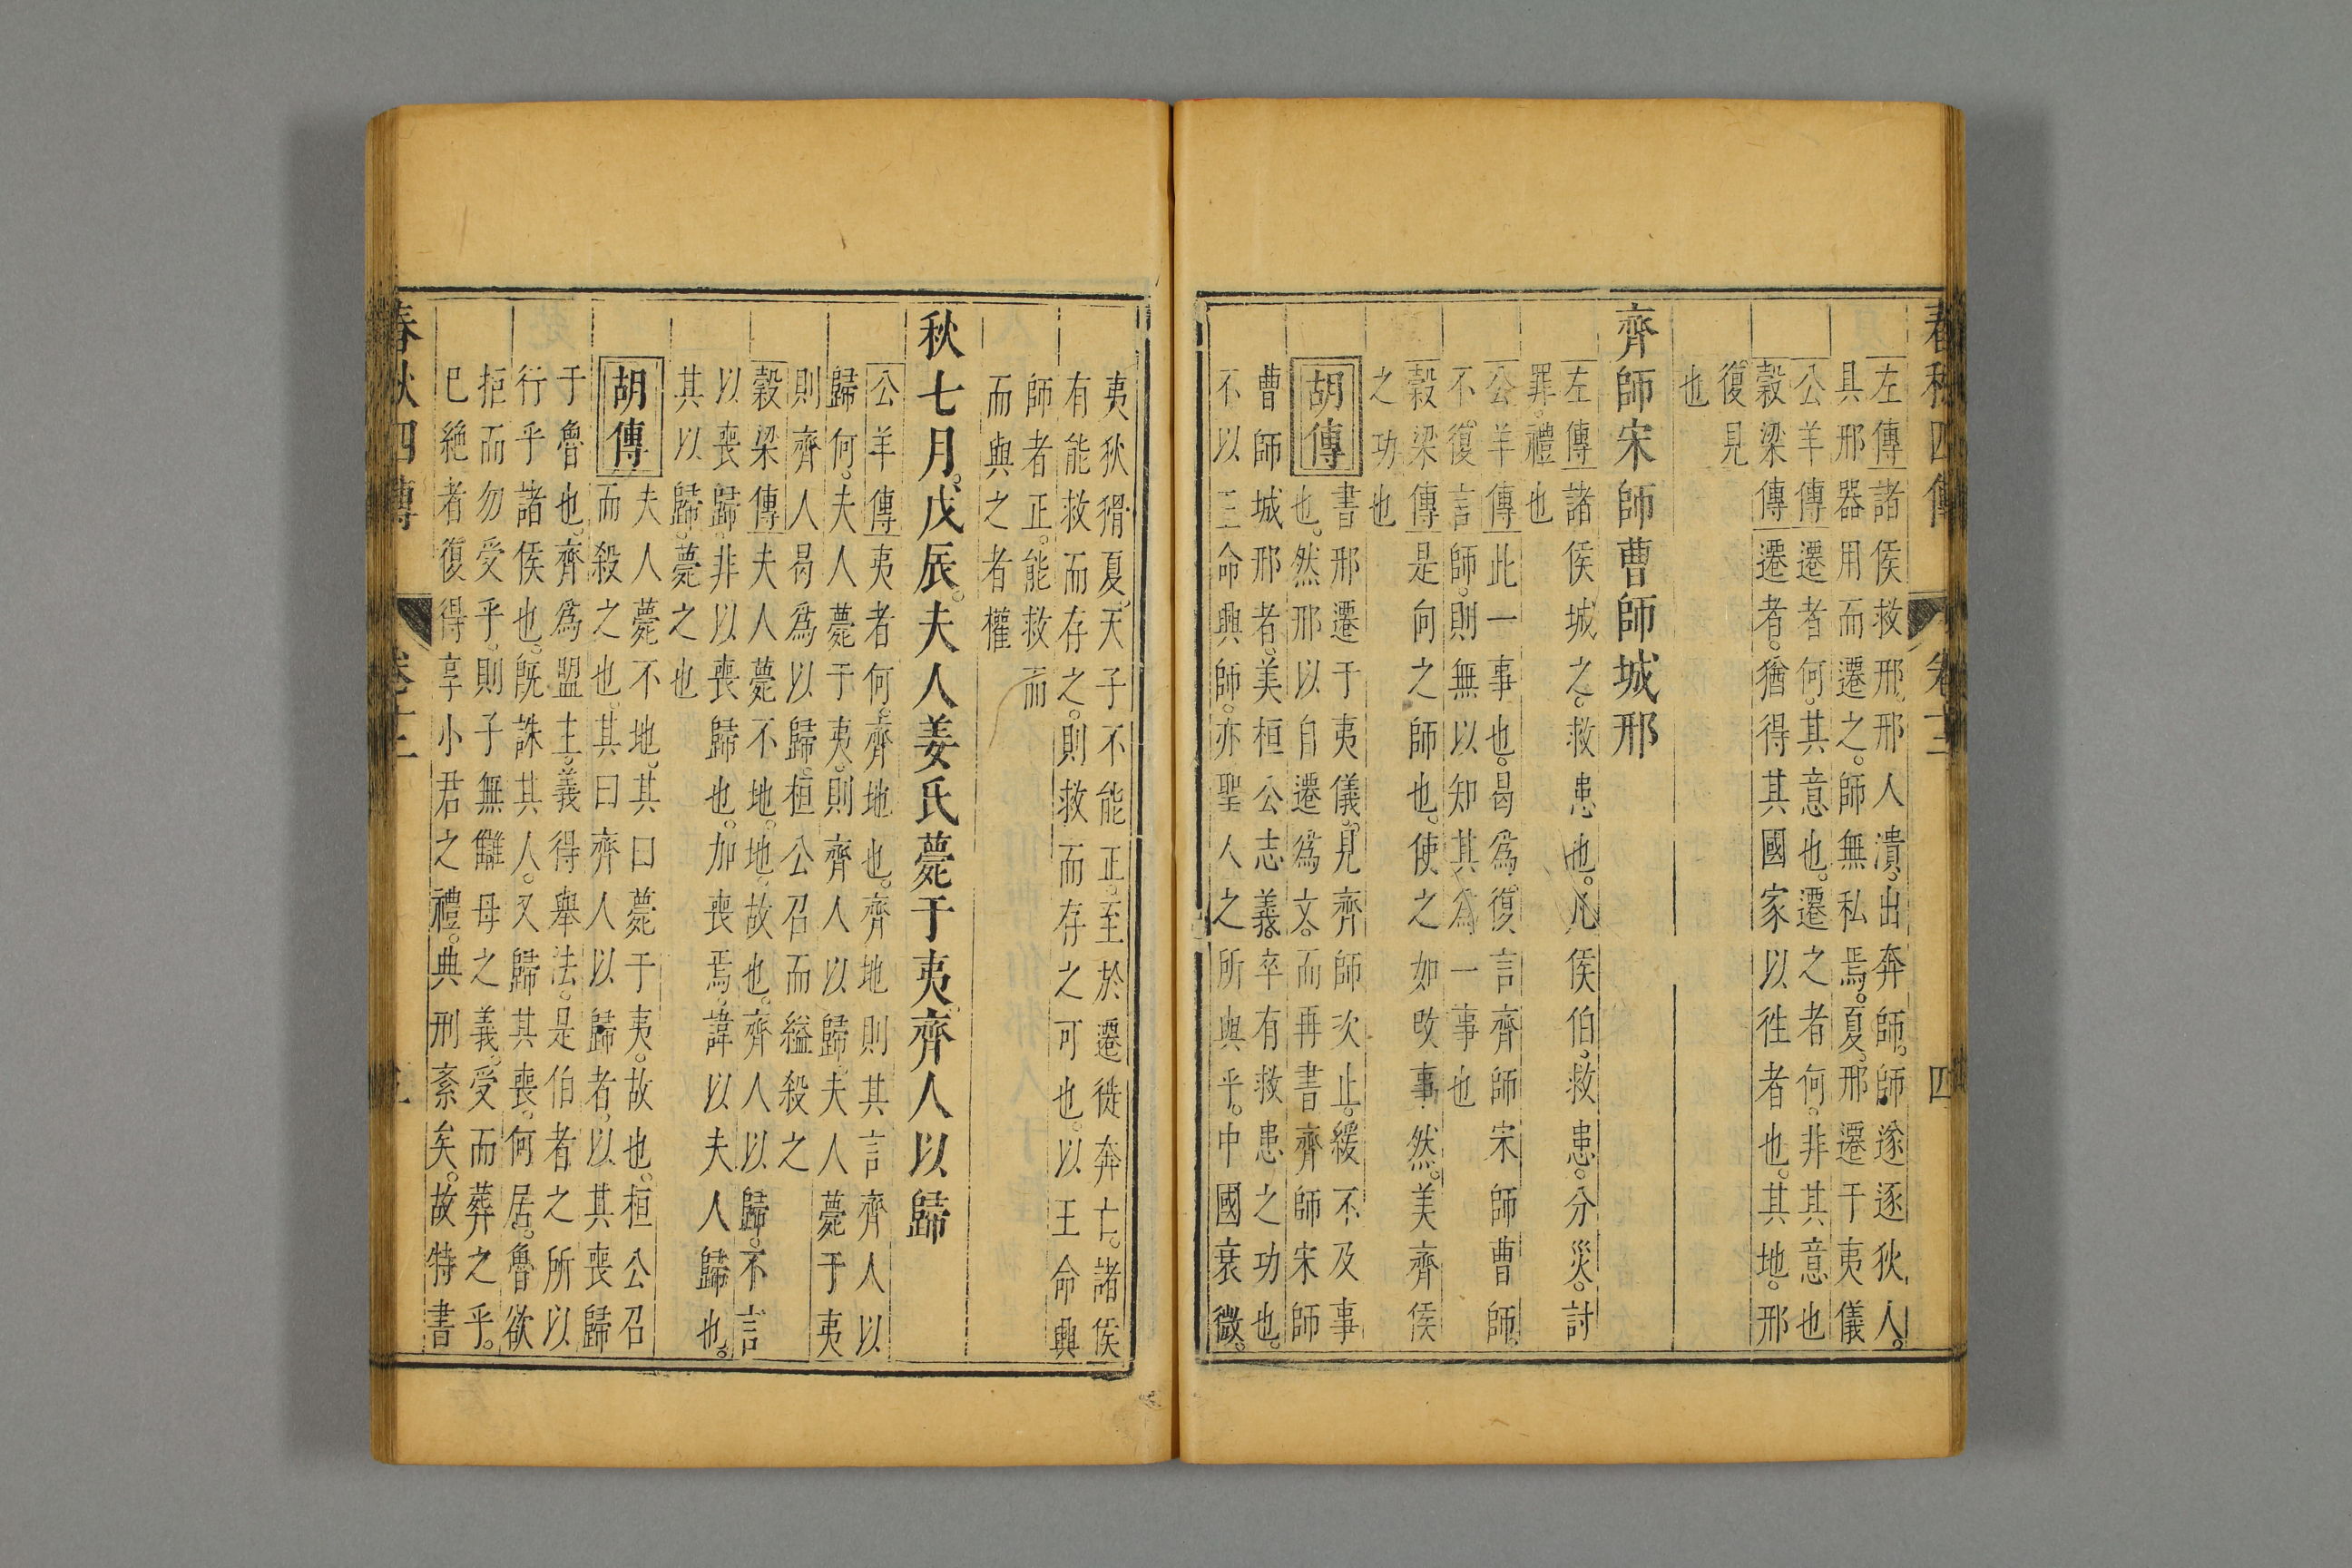 春秋四傳 卷十三 四
左傳諸侯救邢。邢人潰。出奔師。師遂逐狄人。
具邢器用而遷之。師無私焉。夏。邢遷于夷儀
公羊傳遷者何。其意也。遷之者何。非其意也
穀梁傳遷者。猶得其國家以徃者也。其地。邢
復見
也
齊師宋師曹師城邢
左傳諸侯城之。救患也。凡侯伯。救患。分災。討
罪。禮也
公羊傳此一事也。曷爲。復言齊師宋師曹師。
不復言師。則無以知其爲一事也
穀梁傳是向之師也。使之如改事然。美齊侯
之功也
胡傳
書邢遷于夷儀。見齊師次止。緩不及事
也。然邢以自遷爲文。而再書齊師宋師
曹師城邢者。美桓公志義。卒有救患之功也。
不以王命興師。亦聖人之所與乎。中國衰微。
夷狄猾夏。天子不能正。至於遷徙奔亡。諸侯
有能救而存之。則救而存之可也。以王命興
師者正。能救而
而與之者權
秋七月。戊辰。夫人姜氏薨于夷。齊人以歸
公羊傳夷者何。齊地也。齊地則其言齊人以
歸何。夫人薨于夷。則齊人以歸。夫人薨于夷
則齊人曷爲以歸。桓公召而縊殺之
穀梁傳夫人薨不地。地。故也。齊人以歸。不言
以喪歸。非以喪歸也。加喪焉。諱以夫人歸也。
其以歸。薨之也
胡傳
夫人薨不地。其曰薨于夷。故也。桓公召
而殺之也。其曰齊人以歸者。以其喪歸
于魯也。齊爲盟主。義得舉法。是伯者之所以
行乎諸侯也。旣誅其人。又歸其喪。何居。魯欲
拒而勿受乎。則子無讎母之義。受而葬之乎。
巳絶者復得享小君之禮。典刑紊矣。故特書
春秋四傳 卷十三